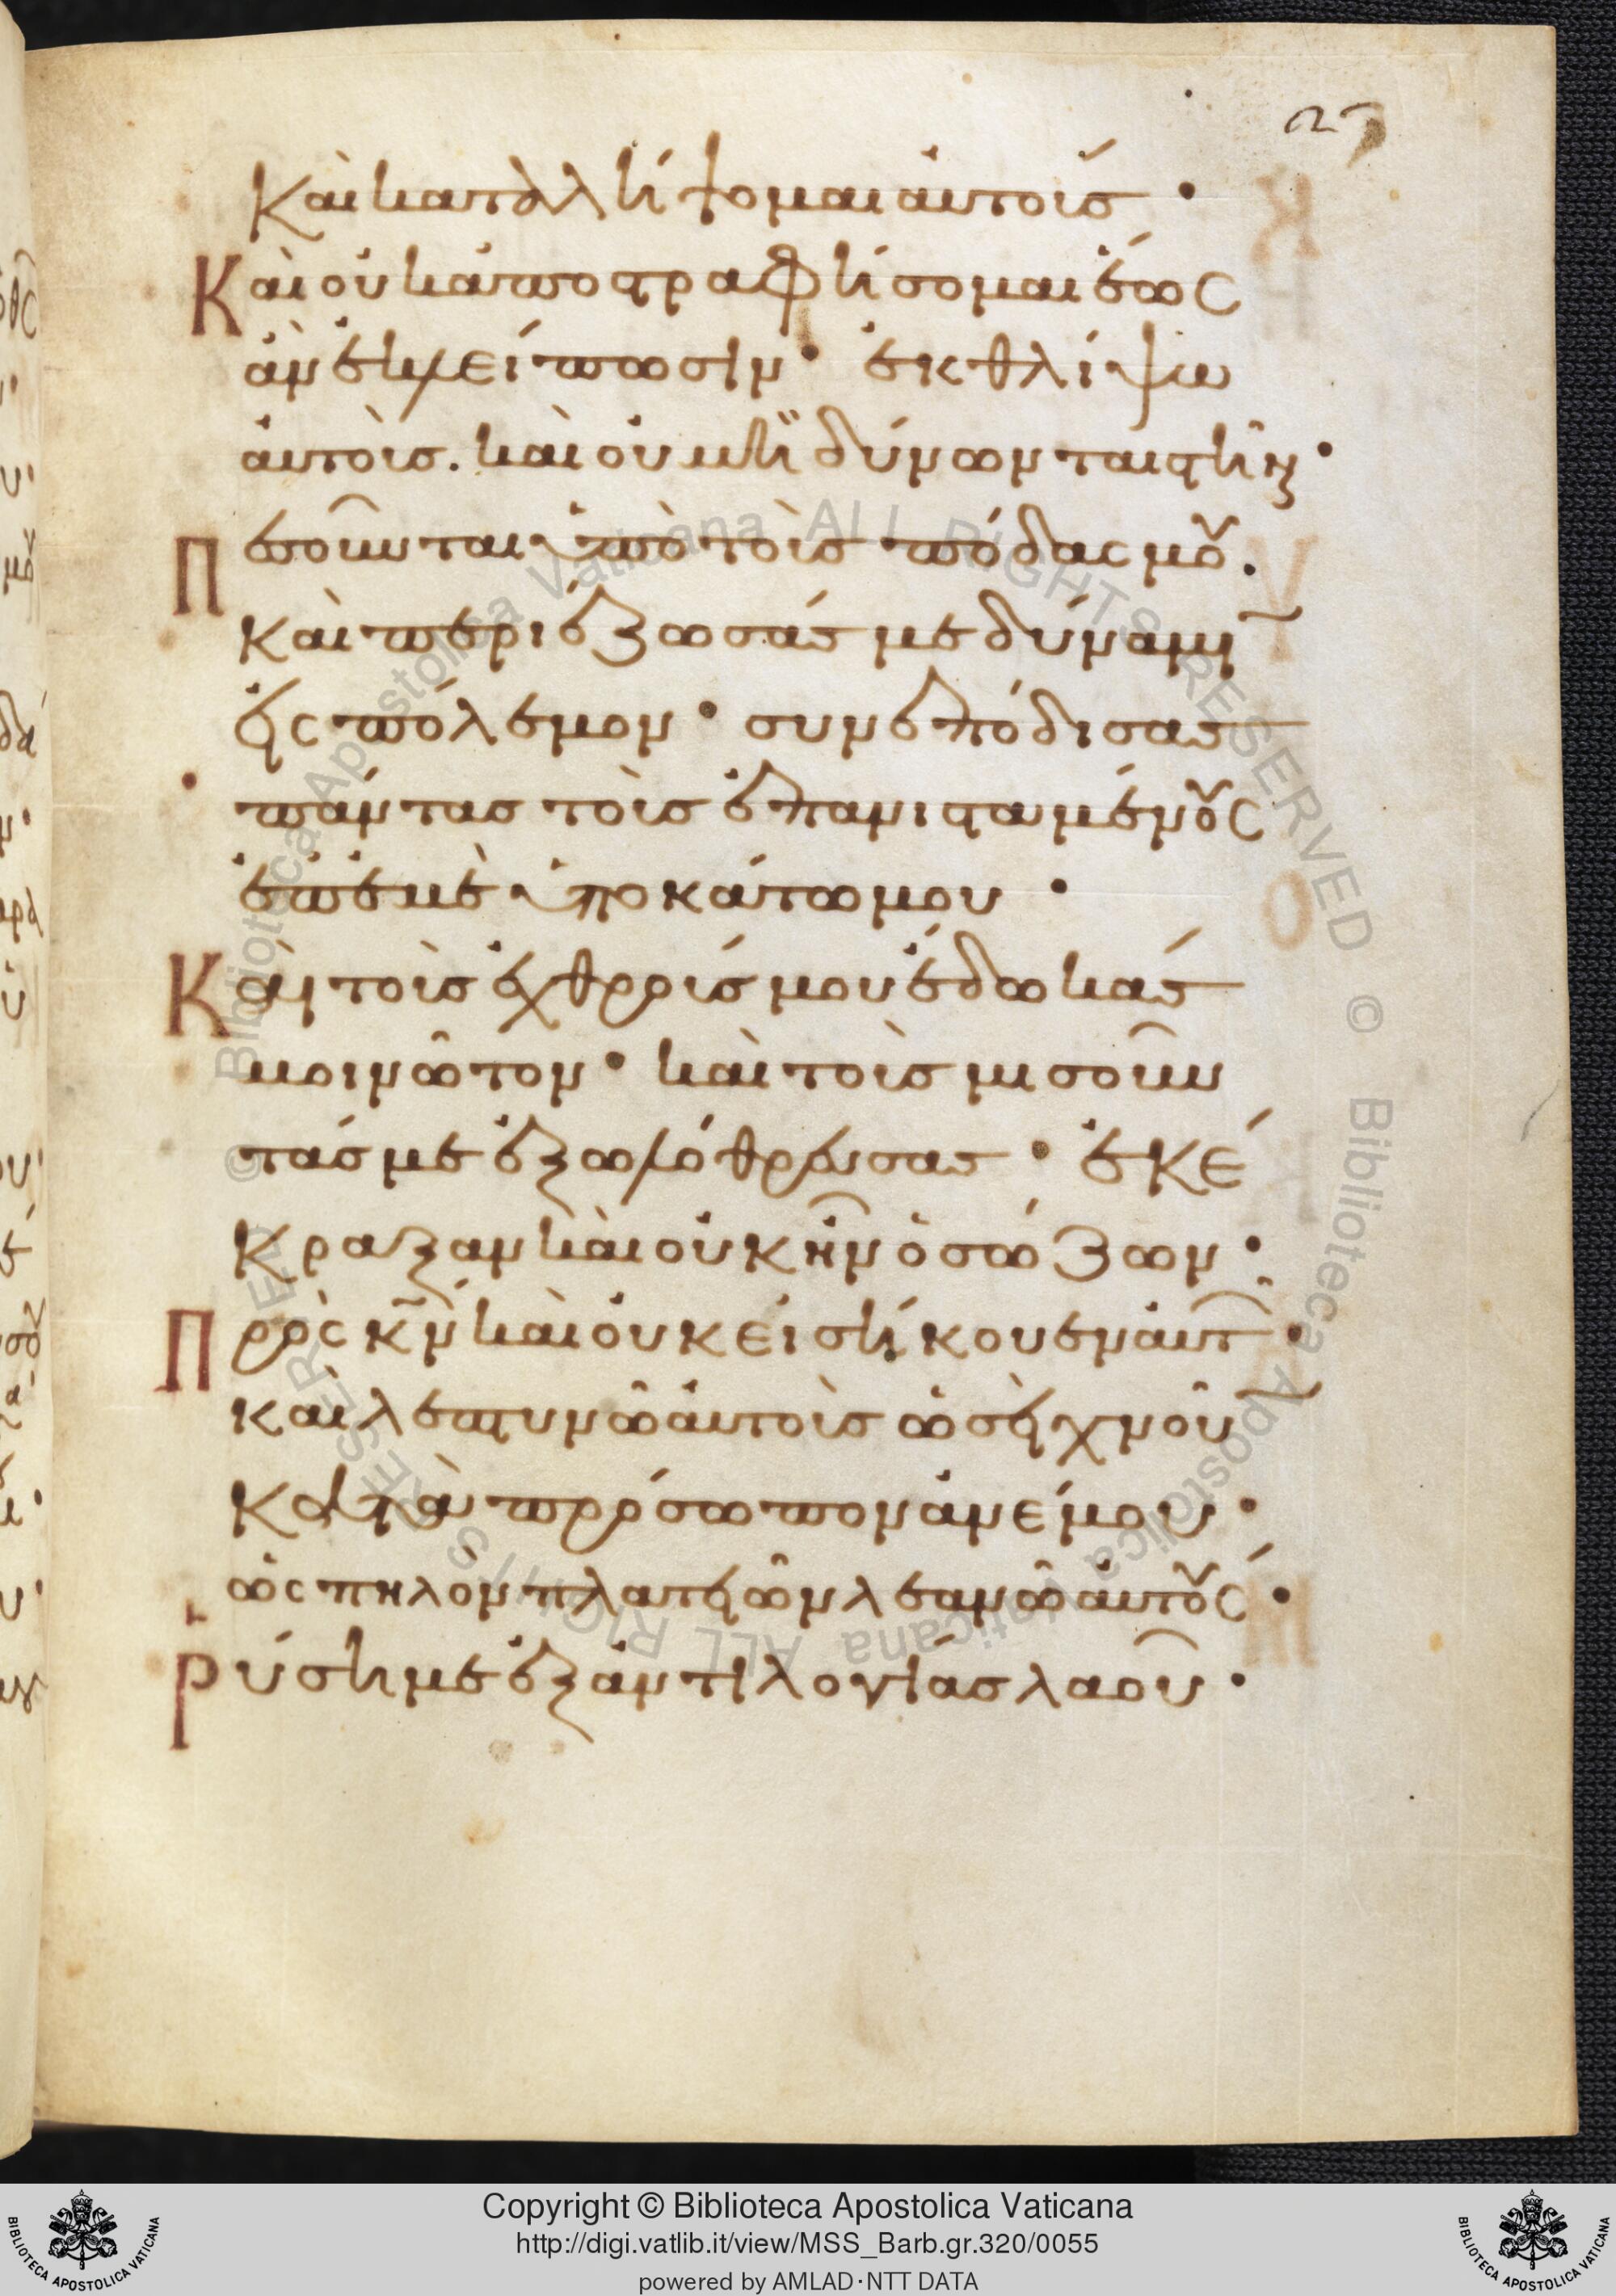 27
Καὶ καταλήψομαι αὐτούς ·
Καὶ οὐκ ἀποστραφήσομαι ἕως
ἂν ἐκλείπωσιν · ἐκθλίψω
αὐτοὺς. καὶ οὐ μὴ δύνωνται στῆναι ·
Πεσοῦνται ὑπὸ τοὺς πόδας μου.
καὶ περιέζωσάς με δύναμιν
εἰς πόλεμον · συνεπόδισας
πάντας τοὺς ἐπανισταμένους
ἐπ' ἐμὲ ὑποκάτω μου ·
Καὶ τοὺς ἐχθρούς μου ἔδωκάς
μοι νῶτον · καὶ τοὺς μισοῦν
τάς με ἐξωλόθρευσας · ἐκέ
κραξαν καὶ οὐκ ἦν ὁ σώζων ·
Πρὸς κ̅ν̅ καὶ οὐκ εἰσήκουσεν αὐτῶν ·
καὶ λεπτυνῶ αὐτοὺς ὡσεὶ χνοῦν
κατὰ πρόσωπον ἀνέμου ·
ὡς πηλὸν πλατειῶν λεανῶ αὐτούς ·
Ῥύσῃ με ἐξ ἀντιλογίας λαοῦ ·
Copyright © Biblioteca Apostolica Vaticana
http://digi.vatlib.it/view/MSS_Barb.gr.320/0055
powered by AMLAD·NTT DATA